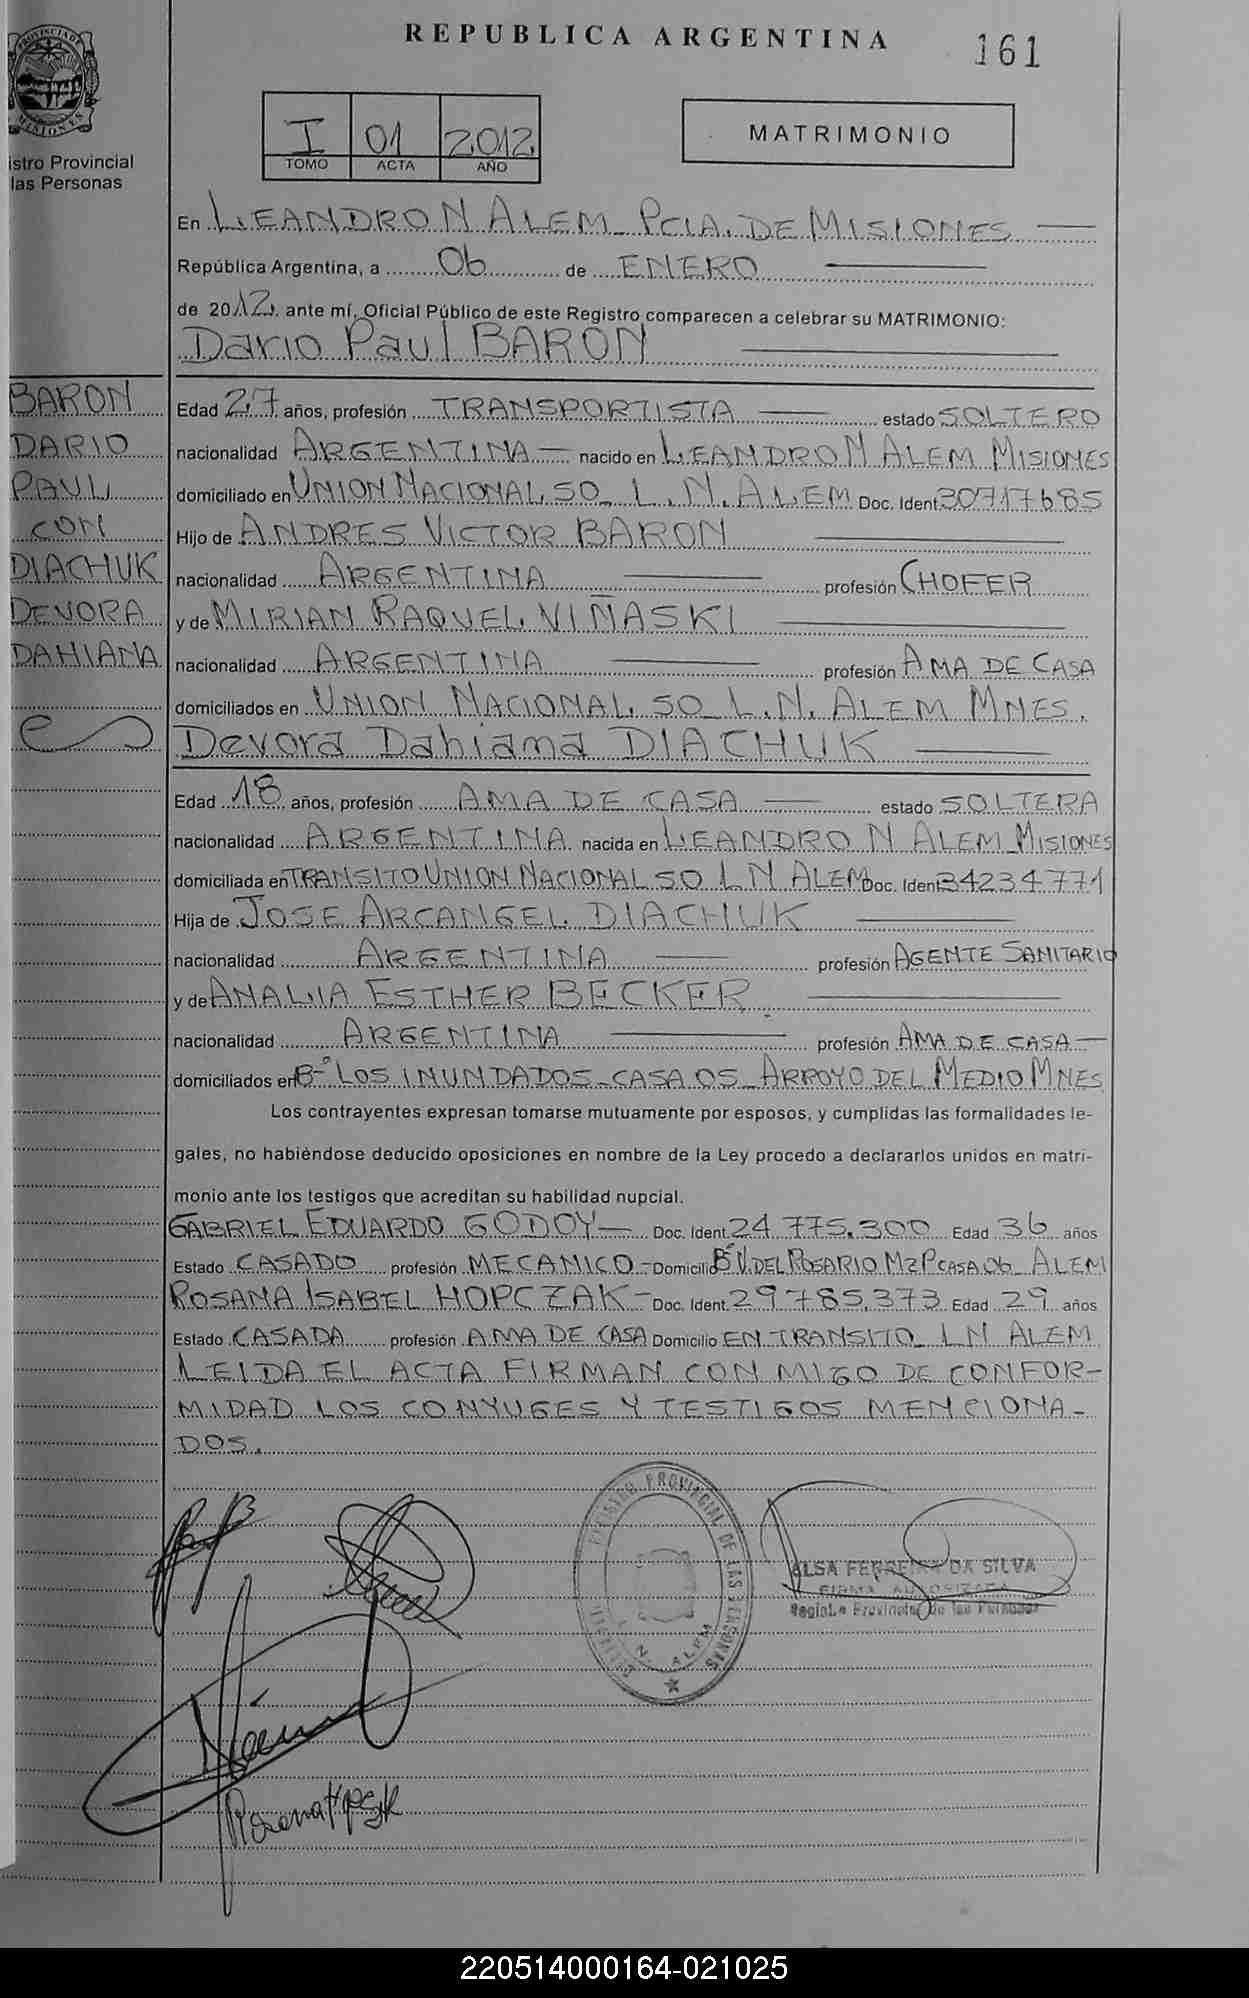 REPUBLICA ARGENTINA
161
PROVINCIA DE MISIONES
istro Provincial
las Personas
I 01 2012
TOMO ACTA AÑO
MATRIMONIO
En LEANDRO N ALEM PCIA. DE MISIONES
República Argentina, a 06 de ENERO
de 2012, ante mí, Oficial Público de este Registro comparecen a celebrar su MATRIMONIO:
Dario Paul BARON
BARON
DARIO
PAUL
CON
DIACHUK
DEVORA
DAHIANA
Edad 27 años, profesión TRANSPORTISTA estado SOLTERO
nacionalidad ARGENTINA nacido en LEANDRO N ALEM MISIONES
domiciliado en UNION NACIONAL 50 L.N. ALEM Doc. Ident 30717685
Hijo de ANDRES VICTOR BARON
nacionalidad ARGENTINA profesión CHOFER
y de MIRIAN RAQUEL VIÑASKI
nacionalidad ARGENTINA profesión AMA DE CASA
domiciliados en UNION NACIONAL 50 L.N. ALEM MNES.
Devora Dahiana DIACHUK
Edad 18 años, profesión AMA DE CASA estado SOLTERA
nacionalidad ARGENTINA nacida en LEANDRO N ALEM MISIONES
domiciliada en TRANSITO UNION NACIONAL 50 L N ALEM Doc. Ident 34234771
Hija de JOSE ARCANGEL DIACHUK
nacionalidad ARGENTINA profesión AGENTE SANITARIO
y de ANALIA ESTHER BECKER
nacionalidad ARGENTINA profesión AMA DE CASA
domiciliados en B° LOS INUNDADOS - CASA 05 ARROYO DEL MEDIO MNES
Los contrayentes expresan tomarse mutuamente por esposos, y cumplidas las formalidades le-
gales, no habiéndose deducido oposiciones en nombre de la Ley procedo a declararlos unidos en matri-
monio ante los testigos que acreditan su habilidad nupcial.
GABRIEL EDUARDO GODOY Doc. Ident. 24.775.300 Edad 36 años
Estado CASADO profesión MECANICO Domicilio B° V. DEL ROSARIO MZ P CASA 06 ALEM
ROSANA ISABEL HOPCZAK Doc. Ident. 29.785.373 Edad 29 años
Estado CASADA profesión AMA DE CASA Domicilio EN TRANSITO L N ALEM
LEIDA EL ACTA FIRMAN CON MIGO DE CONFOR-
MIDAD LOS CONYUGES Y TESTIGOS MENCIONA-
DOS.
REGISTRO PROVINCIAL DE LAS PERSONAS
L. N. ALEM
ELSA FERREIRA DA SILVA
FIRMA AUTORIZADA
Registro Provincial de las Personas
220514000164-021025